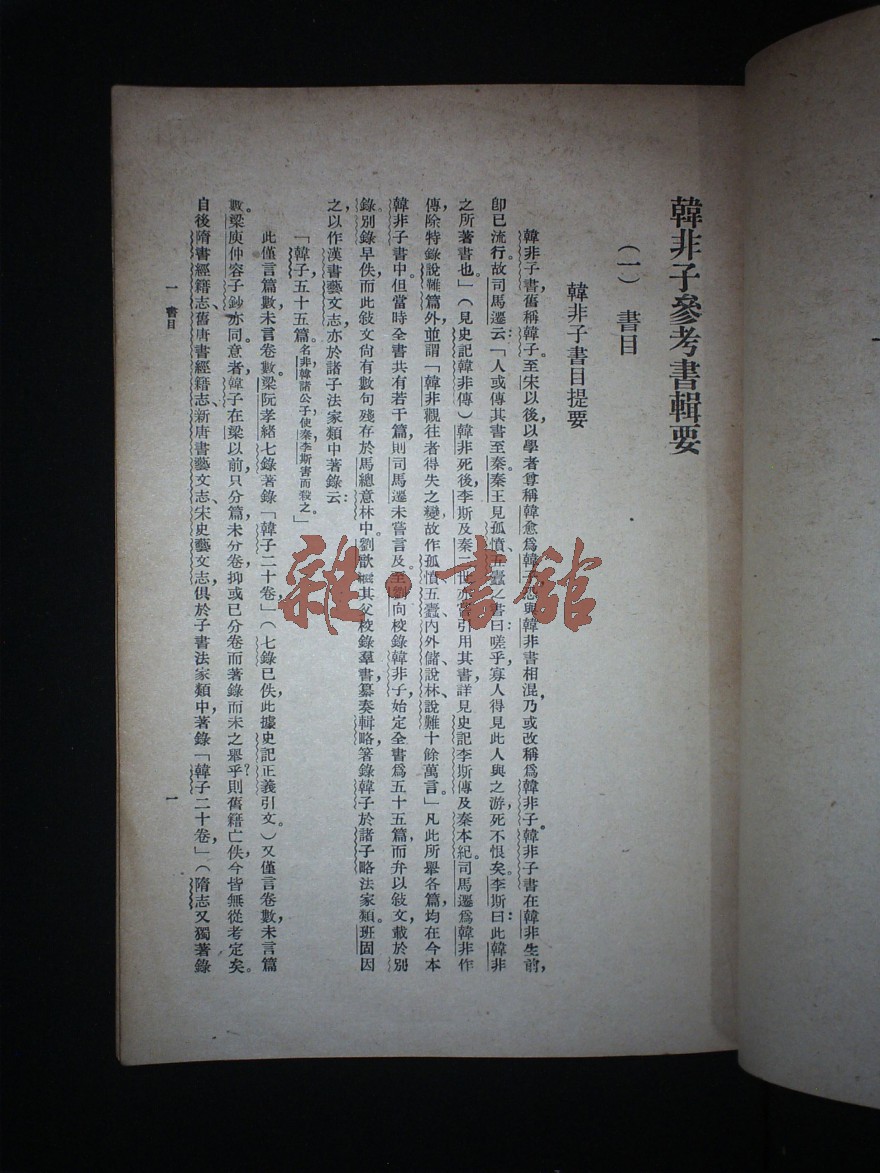 韓非子參考書輯要
（一）書目
韓非子書目提要
韓非子書舊稱韓子。至宋以後，以學者尊稱韓愈爲韓子，恐與韓非書相混，乃或改稱爲韓非子。韓非子書在韓非生前，
卽已流行。故司馬遷云：「人或傳其書至秦。秦王見孤憤、五蠹之書曰：嗟乎，寡人得見此人與之游，死不恨矣。李斯曰：此韓非
之所著書也。」（見史記韓非傳）韓非死後，李斯及秦二世亦嘗引用其書，詳見史記李斯傳及秦本紀。司馬遷爲韓非作
傳，除特錄說難篇外，並謂「韓非觀往者得失之變，故作孤憤、五蠹、內外儲、說林、說難十餘萬言。」凡此所舉各篇，均在今本
韓非子書中。但當時全書共有若干篇，則司馬遷未嘗言及。至劉向校錄韓非子，始定全書爲五十五篇，而弁以敍文，載於別
錄。別錄早佚，而此敍文尙有數句殘存於馬總意林中。劉歆繼其父校錄羣書，纂奏輯略，著錄韓子於諸子略法家類。班固因
之，以作漢書藝文志，亦於諸子法家類中著錄云：
「韓子，五十五篇。名非，韓諸公子，使秦，李斯害而殺之。」
此僅言篇數，未言卷數。梁阮孝緒七錄著錄「韓子二十卷」（七錄已佚，此據史記正義引文。）又僅言卷數，未言篇
數。梁庾仲容子鈔亦同。意者韓子在梁以前，只分篇未分卷，抑或已分卷而著錄而未之舉乎？則舊籍亡佚，今皆無從考定矣。
自後隋書經籍志、舊唐書經籍志、新唐書藝文志、宋史藝文志，俱於子書法家類中，著錄「韓子二十卷，」（隋志又獨著錄
一 書目
一
雜·書館